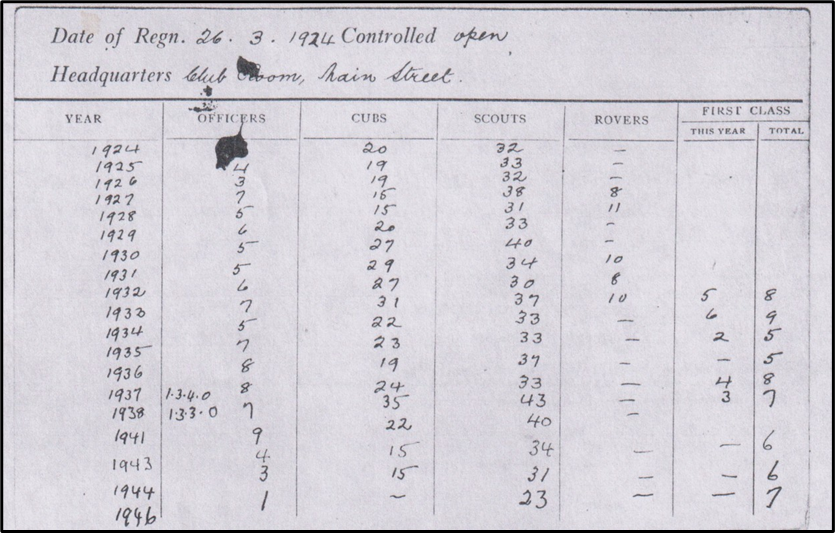 Date of Regn. 26. 3. 1924 Controlled open
Headquarters Club Room, Main Street.
YEAR OFFICERS CUBS SCOUTS ROVERS FIRST CLASS
THIS YEAR TOTAL
1924 20 32 –
1925 4 19 33 –
1926 3 19 32 –
1927 7 15 38 8
1928 5 15 31 11
1929 6 20 33 –
1930 5 27 40 –
1931 5 29 34 10
1932 6 27 30 8
1933 7 31 37 10 5 8
1934 5 22 33 – 6 9
1935 7 23 33 – 2 5
1936 8 19 37 – 5
1937 1.3.4.0 8 24 33 – 4 8
1938 1.3.3.0 7 35 43 – 3 7
1941 9 22 40 –
1943 4 15 34 – – 6
1944 3 15 31 – – 6
1946 1 – 23 – – 7